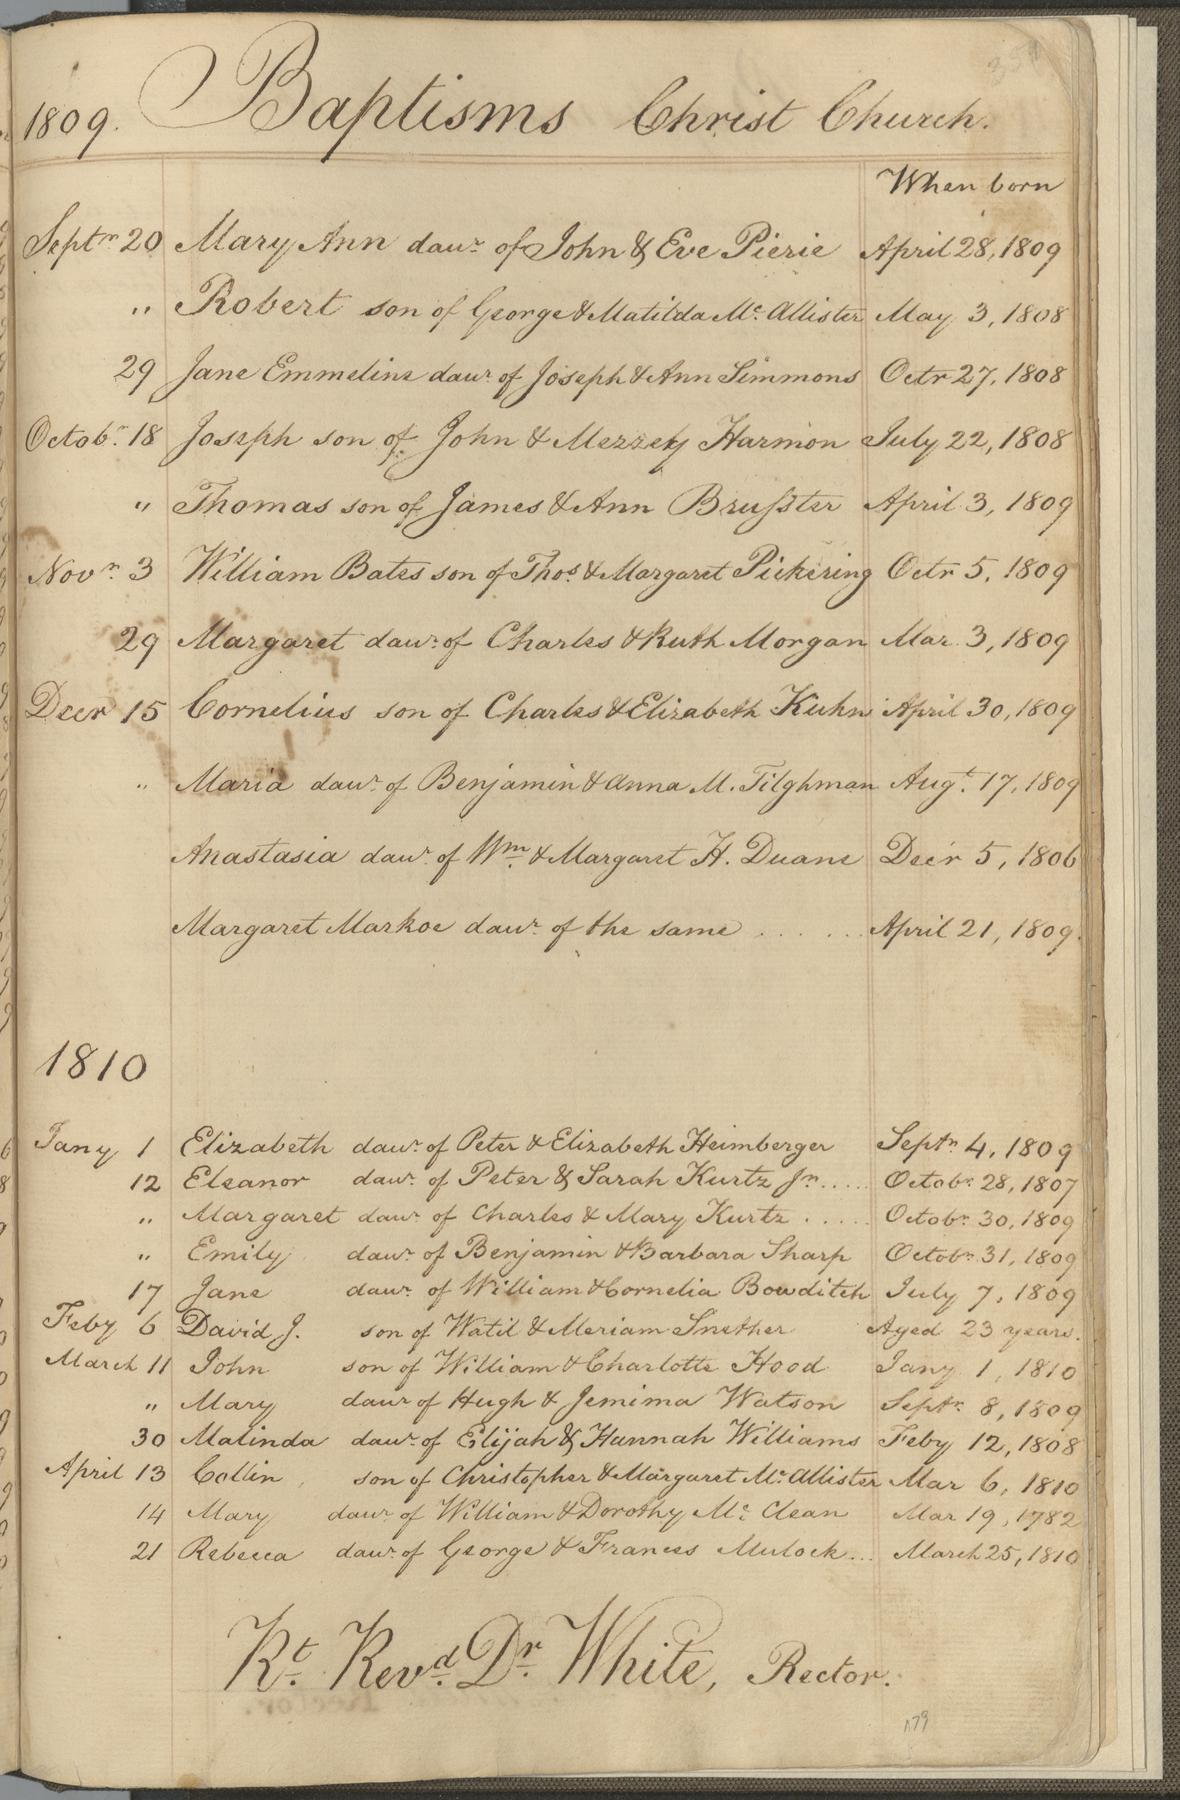 1809. Baptisms Christ Church.
When born
Septr 20 Mary Ann daur of John & Eve Pierie April 28, 1809
" Robert son of George & Matilda Mc Allister May 3, 1808
29 Jane Emmeline daur of Joseph & Ann Simmons Octr 27, 1808
Octobr 18 Joseph son of John & Mezzey Harmon July 22, 1808
" Thomas son of James & Ann Brusster April 3, 1809
Novr 3 William Bates son of Thos & Margaret Pickering Octr 5, 1809
29 Margaret daur of Charles & Ruth Morgan Mar 3, 1809
Decr 15 Cornelius son of Charles & Elizabeth Kuhn April 30, 1809
" Maria daur of Benjamin & Anna M. Tilghman Augt 17, 1809
Anastasia daur of Wm & Margaret H. Duane Decr 5, 1806
Margaret Markoe daur of the same ...... April 21, 1809.
1810
Jany 1 Elizabeth daur of Peter & Elizabeth Heimberger Septr 4, 1809
12 Eleanor daur of Peter & Sarah Kurtz Jr..... Octobr 28, 1807
" Margaret daur of Charles & Mary Kurtz ..... Octobr 30, 1809
" Emily daur of Benjamin & Barbara Sharp Octobr 31, 1809
17 Jane daur of William & Cornelia Bowditch July 7, 1809
Feby 6 David J. son of Watil & Meriam Snether Aged 23 years.
March 11 John son of William & Charlotte Hood Jany 1, 1810
" Mary daur of Hugh & Jemima Watson Septr 8, 1809
30 Malinda daur of Elijah & Hannah Williams Feby 12, 1808
April 13 Collin son of Christopher & Margaret Mc Allister Mar 6, 1810
14 Mary daur of William & Dorothy Mc Clean Mar 19, 1782
21 Rebecca daur of George & Frances Mulock... March 25, 1810
Rt. Revd. Dr. White, Rector.
179